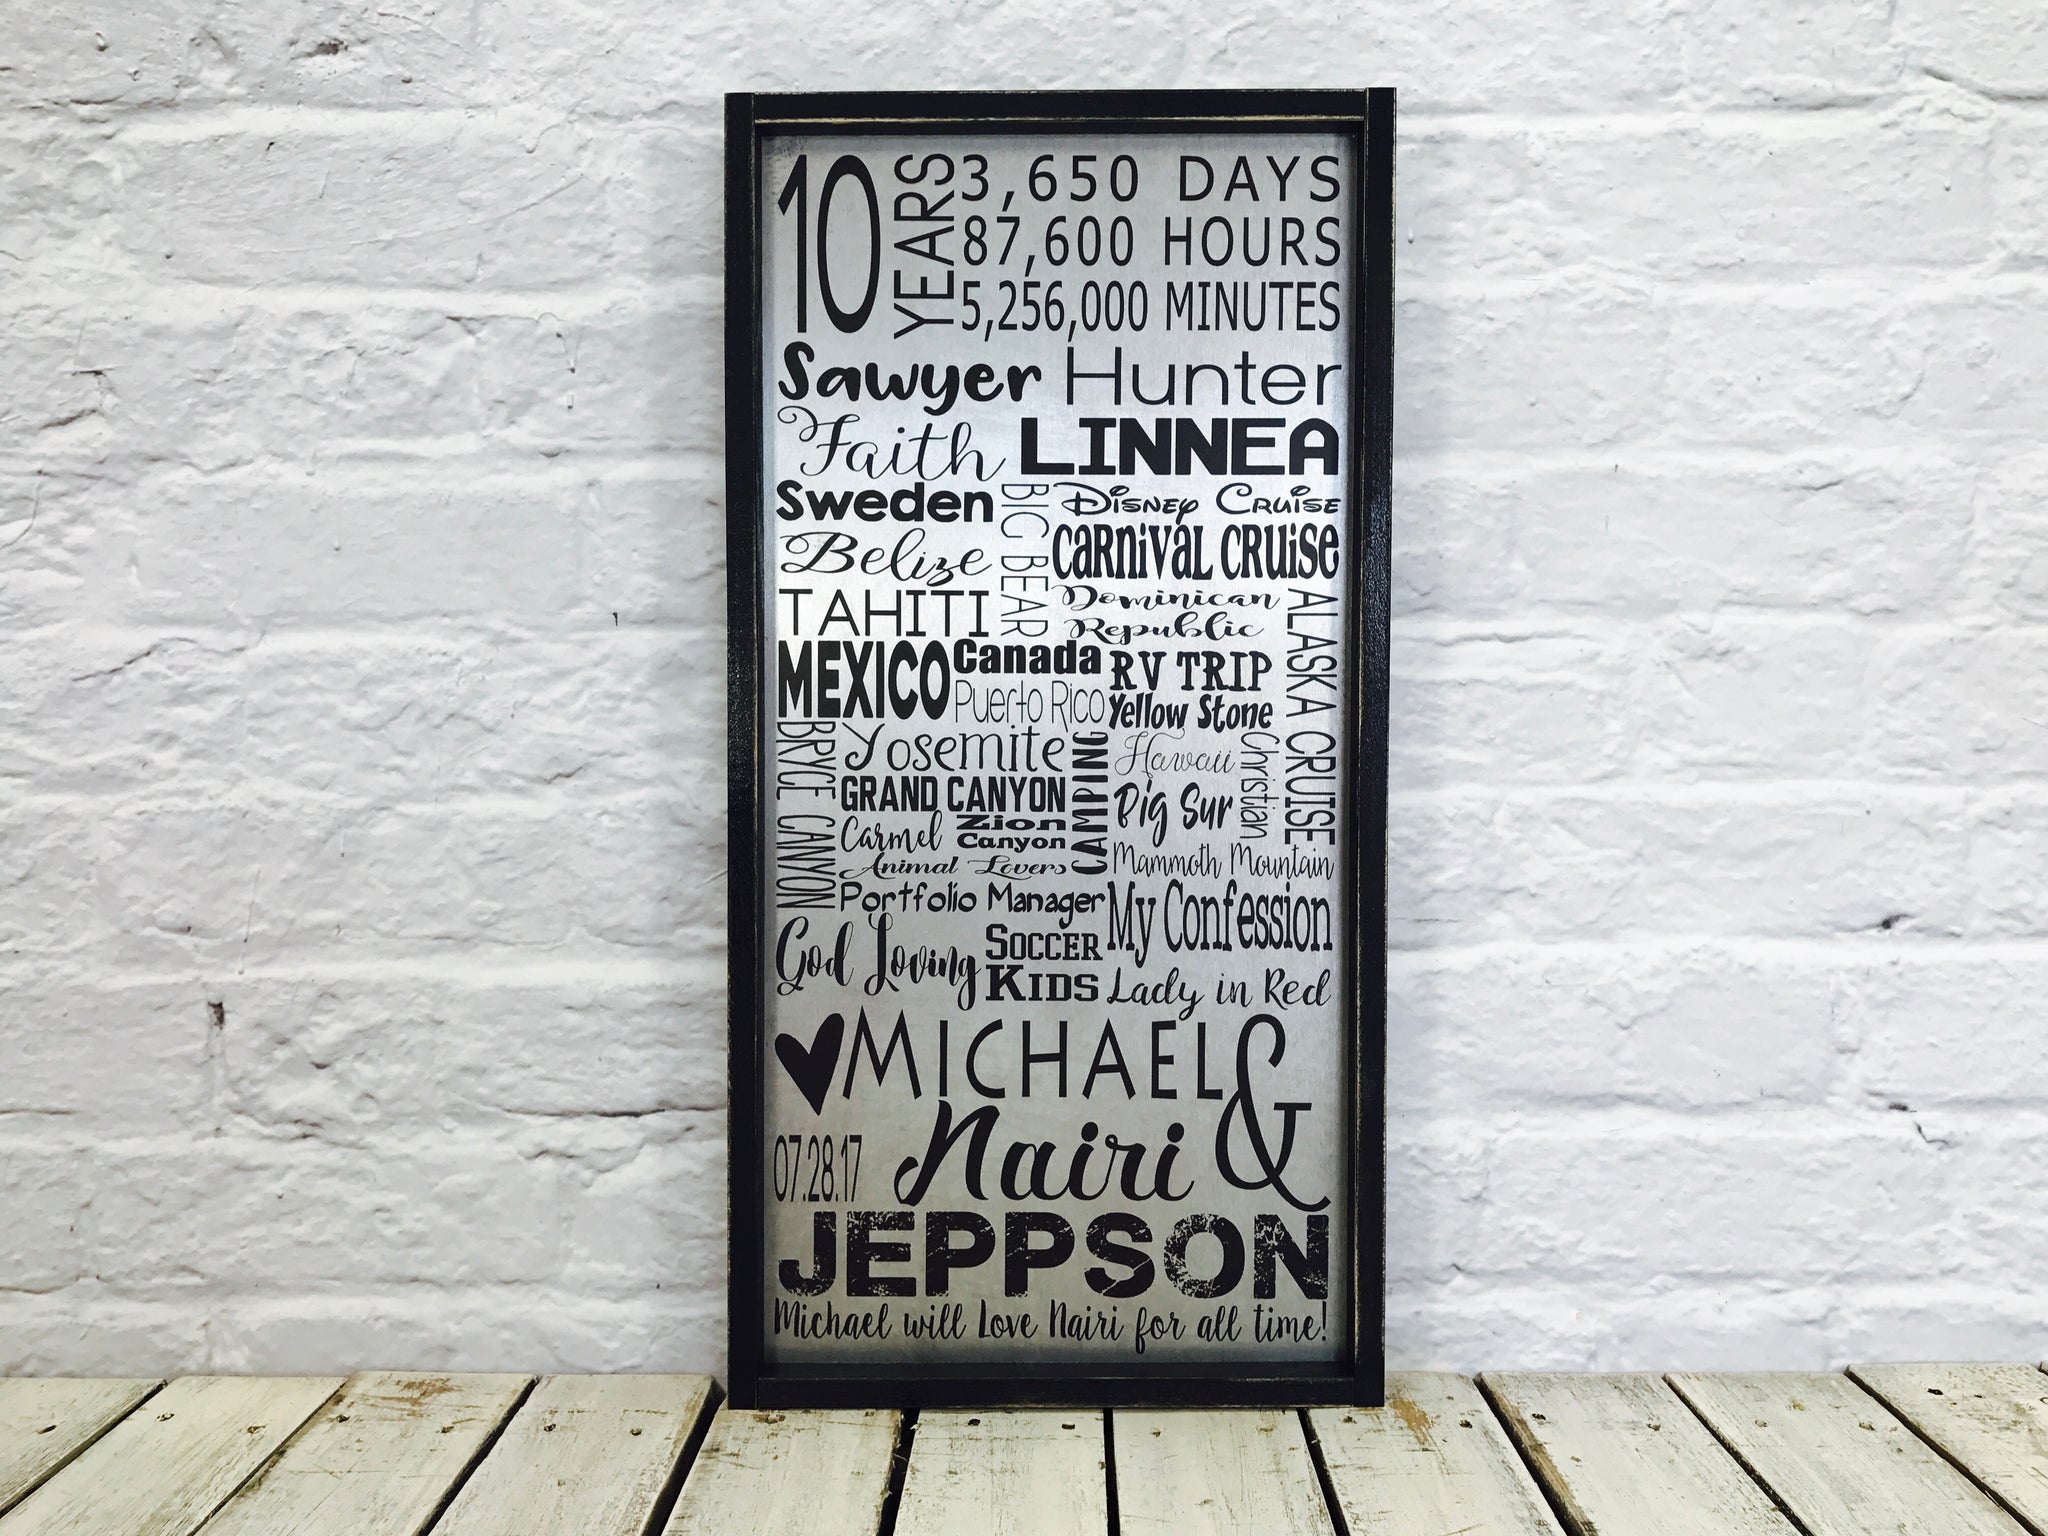 10 YEARS
3,650 DAYS
87,600 HOURS
5,256,000 MINUTES
Sawyer Hunter
Faith LINNEA
Sweden
BIG BEAR
Disney Cruise
Belize
Carnival Cruise
TAHITI
Dominican
Republic
ALASKA CRUISE
MEXICO
Canada
Puerto Rico
RV TRIP
Yellow Stone
BRYCE CANYON
Yosemite
CAMPING
Hawaii
Christian
GRAND CANYON
Big Sur
Carmel
Zion
Canyon
Animal Lovers
Mammoth Mountain
Portfolio Manager
My Confession
God Loving
Soccer
Kids
Lady in Red
MICHAEL &
Nairi
07.28.17
JEPPSON
Michael will Love Nairi for all time!